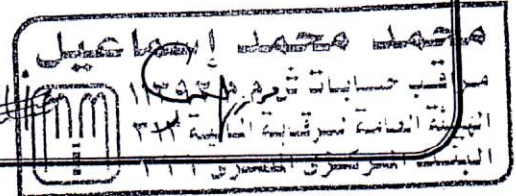 محمد محمد إسماعيل
مراقب حسابات
الهيئة العامة للرقابة المالية ٣١٣
البنك المركزى المصرى